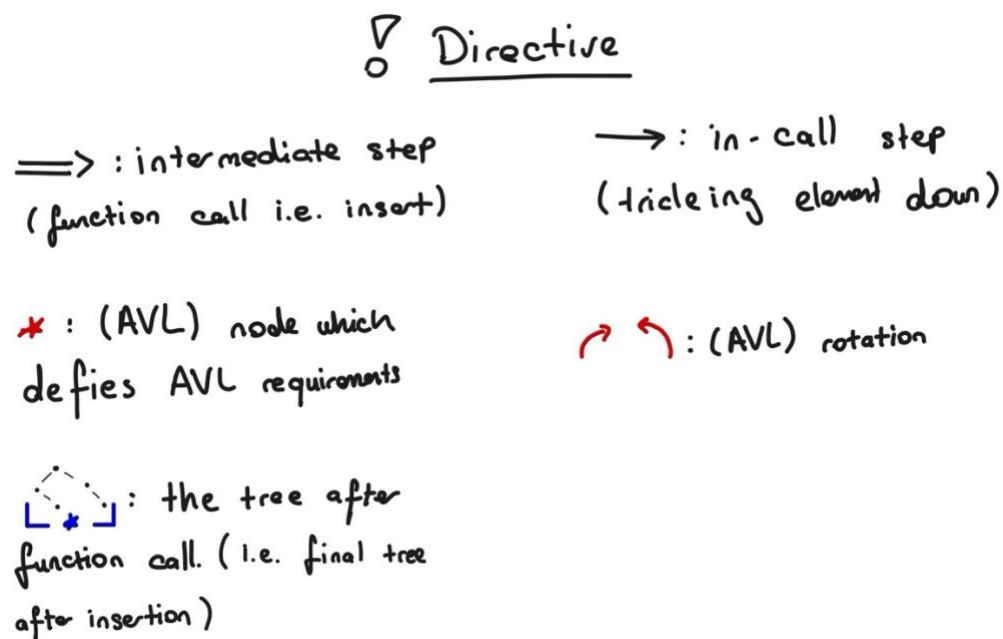 ! Directive
⟹ : intermediate step
(function call i.e. insert)
⟶ : in-call step
(tricleing element down)
* : (AVL) node which
defies AVL requirements
: (AVL) rotation
* : the tree after
function call. (i.e. final tree
after insertion)